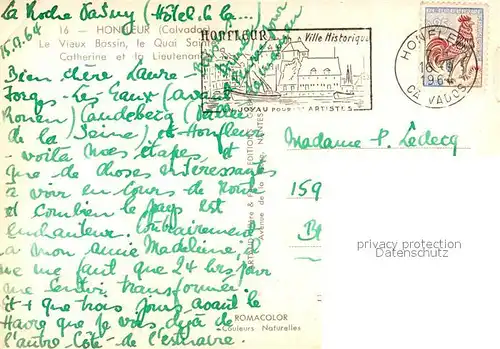 La Roche (Hôtel de la ...)
15.9.64
16 - HONFLEUR (Calvados)
Le Vieux Bassin, le Quai Sainte
Catherine et la Lieutenance
Bien chère Laure -
Forges-Les Eaux (avant
Rouen) Caudebec (Vallée
de la Seine) et Honfleur
- voilà mes étapes, et
que de choses intéressantes
à voir en cours de route
et combien le pays est
enchanteur. Contrairement
à mon amie Madeleine, il
me faut que 24 hrs pour
me sentir transformée.
Et + que trois jours avant le
Havre que je vois déjà de
l'autre côté de l'estuaire.
HONFLEUR
Ville Historique
JOYAU POUR ARTISTES
HONFLEUR
16 -9
1964
CALVADOS
Madame P. Ledecq
159
privacy protection
Datenschutz
NANTES
ROMACOLOR
Couleurs Naturelles